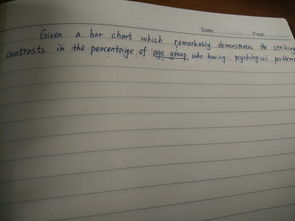 Date: Page:
Given a bar chart which remarkably demonstrates the striking
contrasts in the percentage of age group who having psychological problems